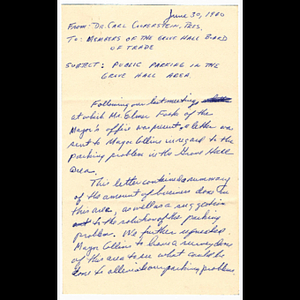 June 30, 1960
From: Dr Carl Silverstein, Pres.
To: Members of the Grove Hall Board
of Trade
Subject: Public Parking in the
Grove Hall Area
Following our last meeting
at which Mr. Elmer Foxe of the
Mayor's office was present, a letter was
sent to Mayor Collins in regard to the
parking problem in the Grove Hall
area.
This letter contained a summary
of the amount of business done in
this area, as well as a suggestion
to the solution of the parking
problem. We further requested
Mayor Collins to have a survey done
of this area to see what could be
done to alleviate our parking problems